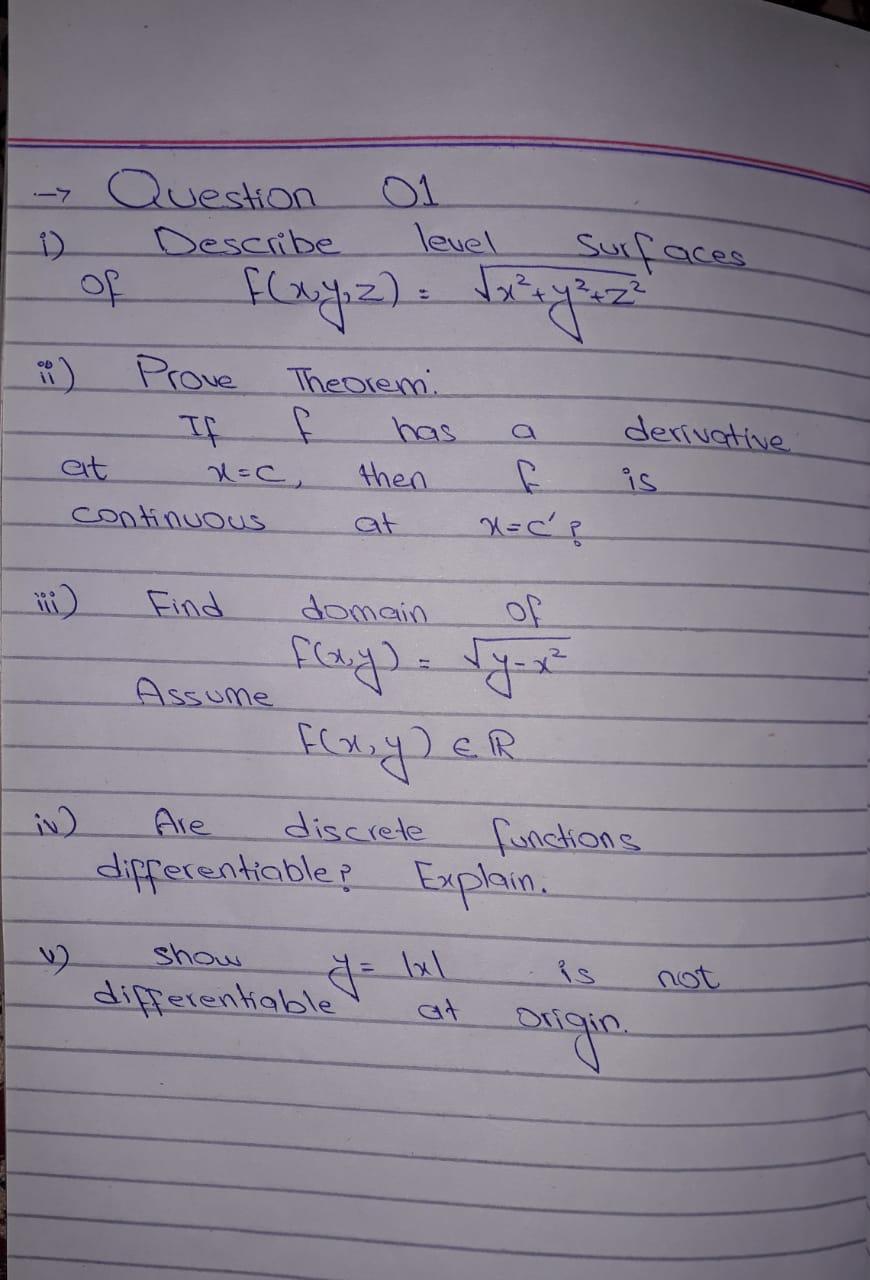 → Question 01
i) Describe level surfaces
of f(x,y,z) = √x²+y²+z²
ii) Prove Theorem.
If f has a derivative
at x=c, then f is
continuous at x=c'?
iii) Find domain of
f(x,y) = √y-x²
Assume
f(x,y) ∈ ℝ
iv) Are discrete functions
differentiable? Explain.
v) show y = |x| is not
differentiable at origin.